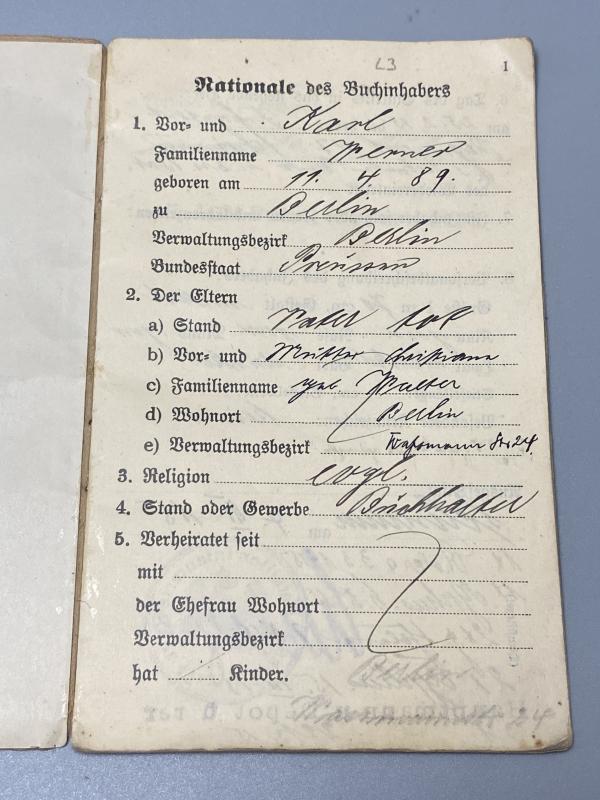 L3
1
Nationale des Buchinhabers
1. Vor- und Karl
Familienname Werner
geboren am 11. 4. 89.
zu Berlin
Verwaltungsbezirk Berlin
Bundesstaat Preussen
2. Der Eltern
a) Stand Vater tot
b) Vor- und Mutter Christiane
c) Familienname geb. Walter
d) Wohnort Berlin
e) Verwaltungsbezirk Str 24.
3. Religion evgl.
4. Stand oder Gewerbe Buchhalter
5. Verheiratet seit
mit
der Ehefrau Wohnort
Verwaltungsbezirk
Berlin
hat / Kinder.
24